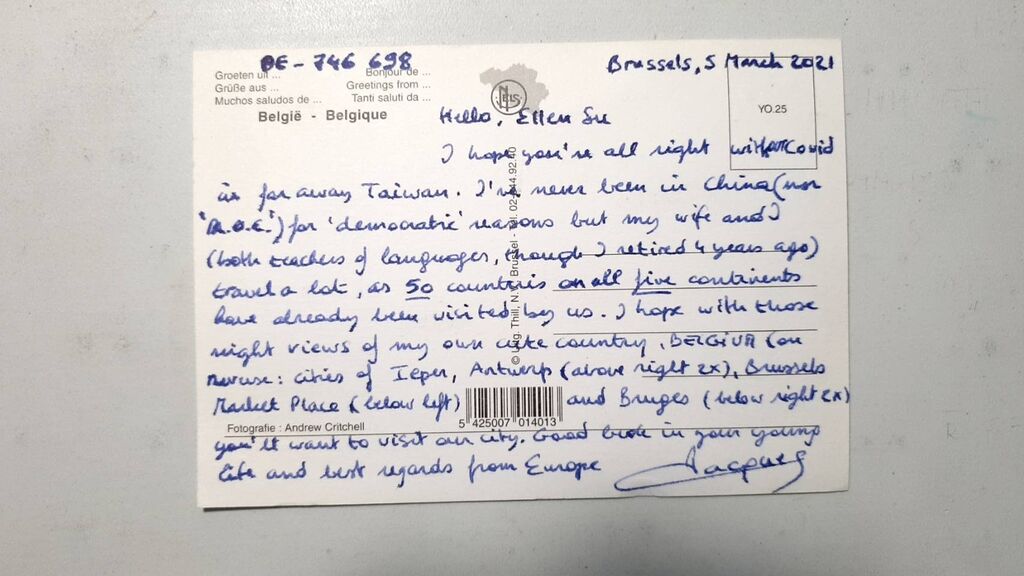 BE - 746 698
Brussels, 5 March 2021
Groeten uit ...
Bonjour de ...
Grüße aus ...
Greetings from ...
Muchos saludos de ...
Tanti saluti da ...
België - Belgique
NELS
YO.25
Hello, Ellen Su
I hope you're all right without Covid
in far away Taiwan. I've never been in China (nor
'R.O.C.') for 'democratic' reasons but my wife and I
(both teachers of languages, though I retired 4 years ago)
travel a lot, as 50 countries on all five continents
have already been visited by us. I hope with those
night views of my own cute country, BELGIUM (on
reverse: cities of Ieper, Antwerp (above right 2x), Brussels
Market Place (below left) and Bruges (below right 2x)
5 425007 014013
Fotografie : Andrew Critchell
you'll want to visit our city. Good luck in your young
life and best regards from Europe
Jacques
Thill, N. Brussel - Tel. 02 44.92.40